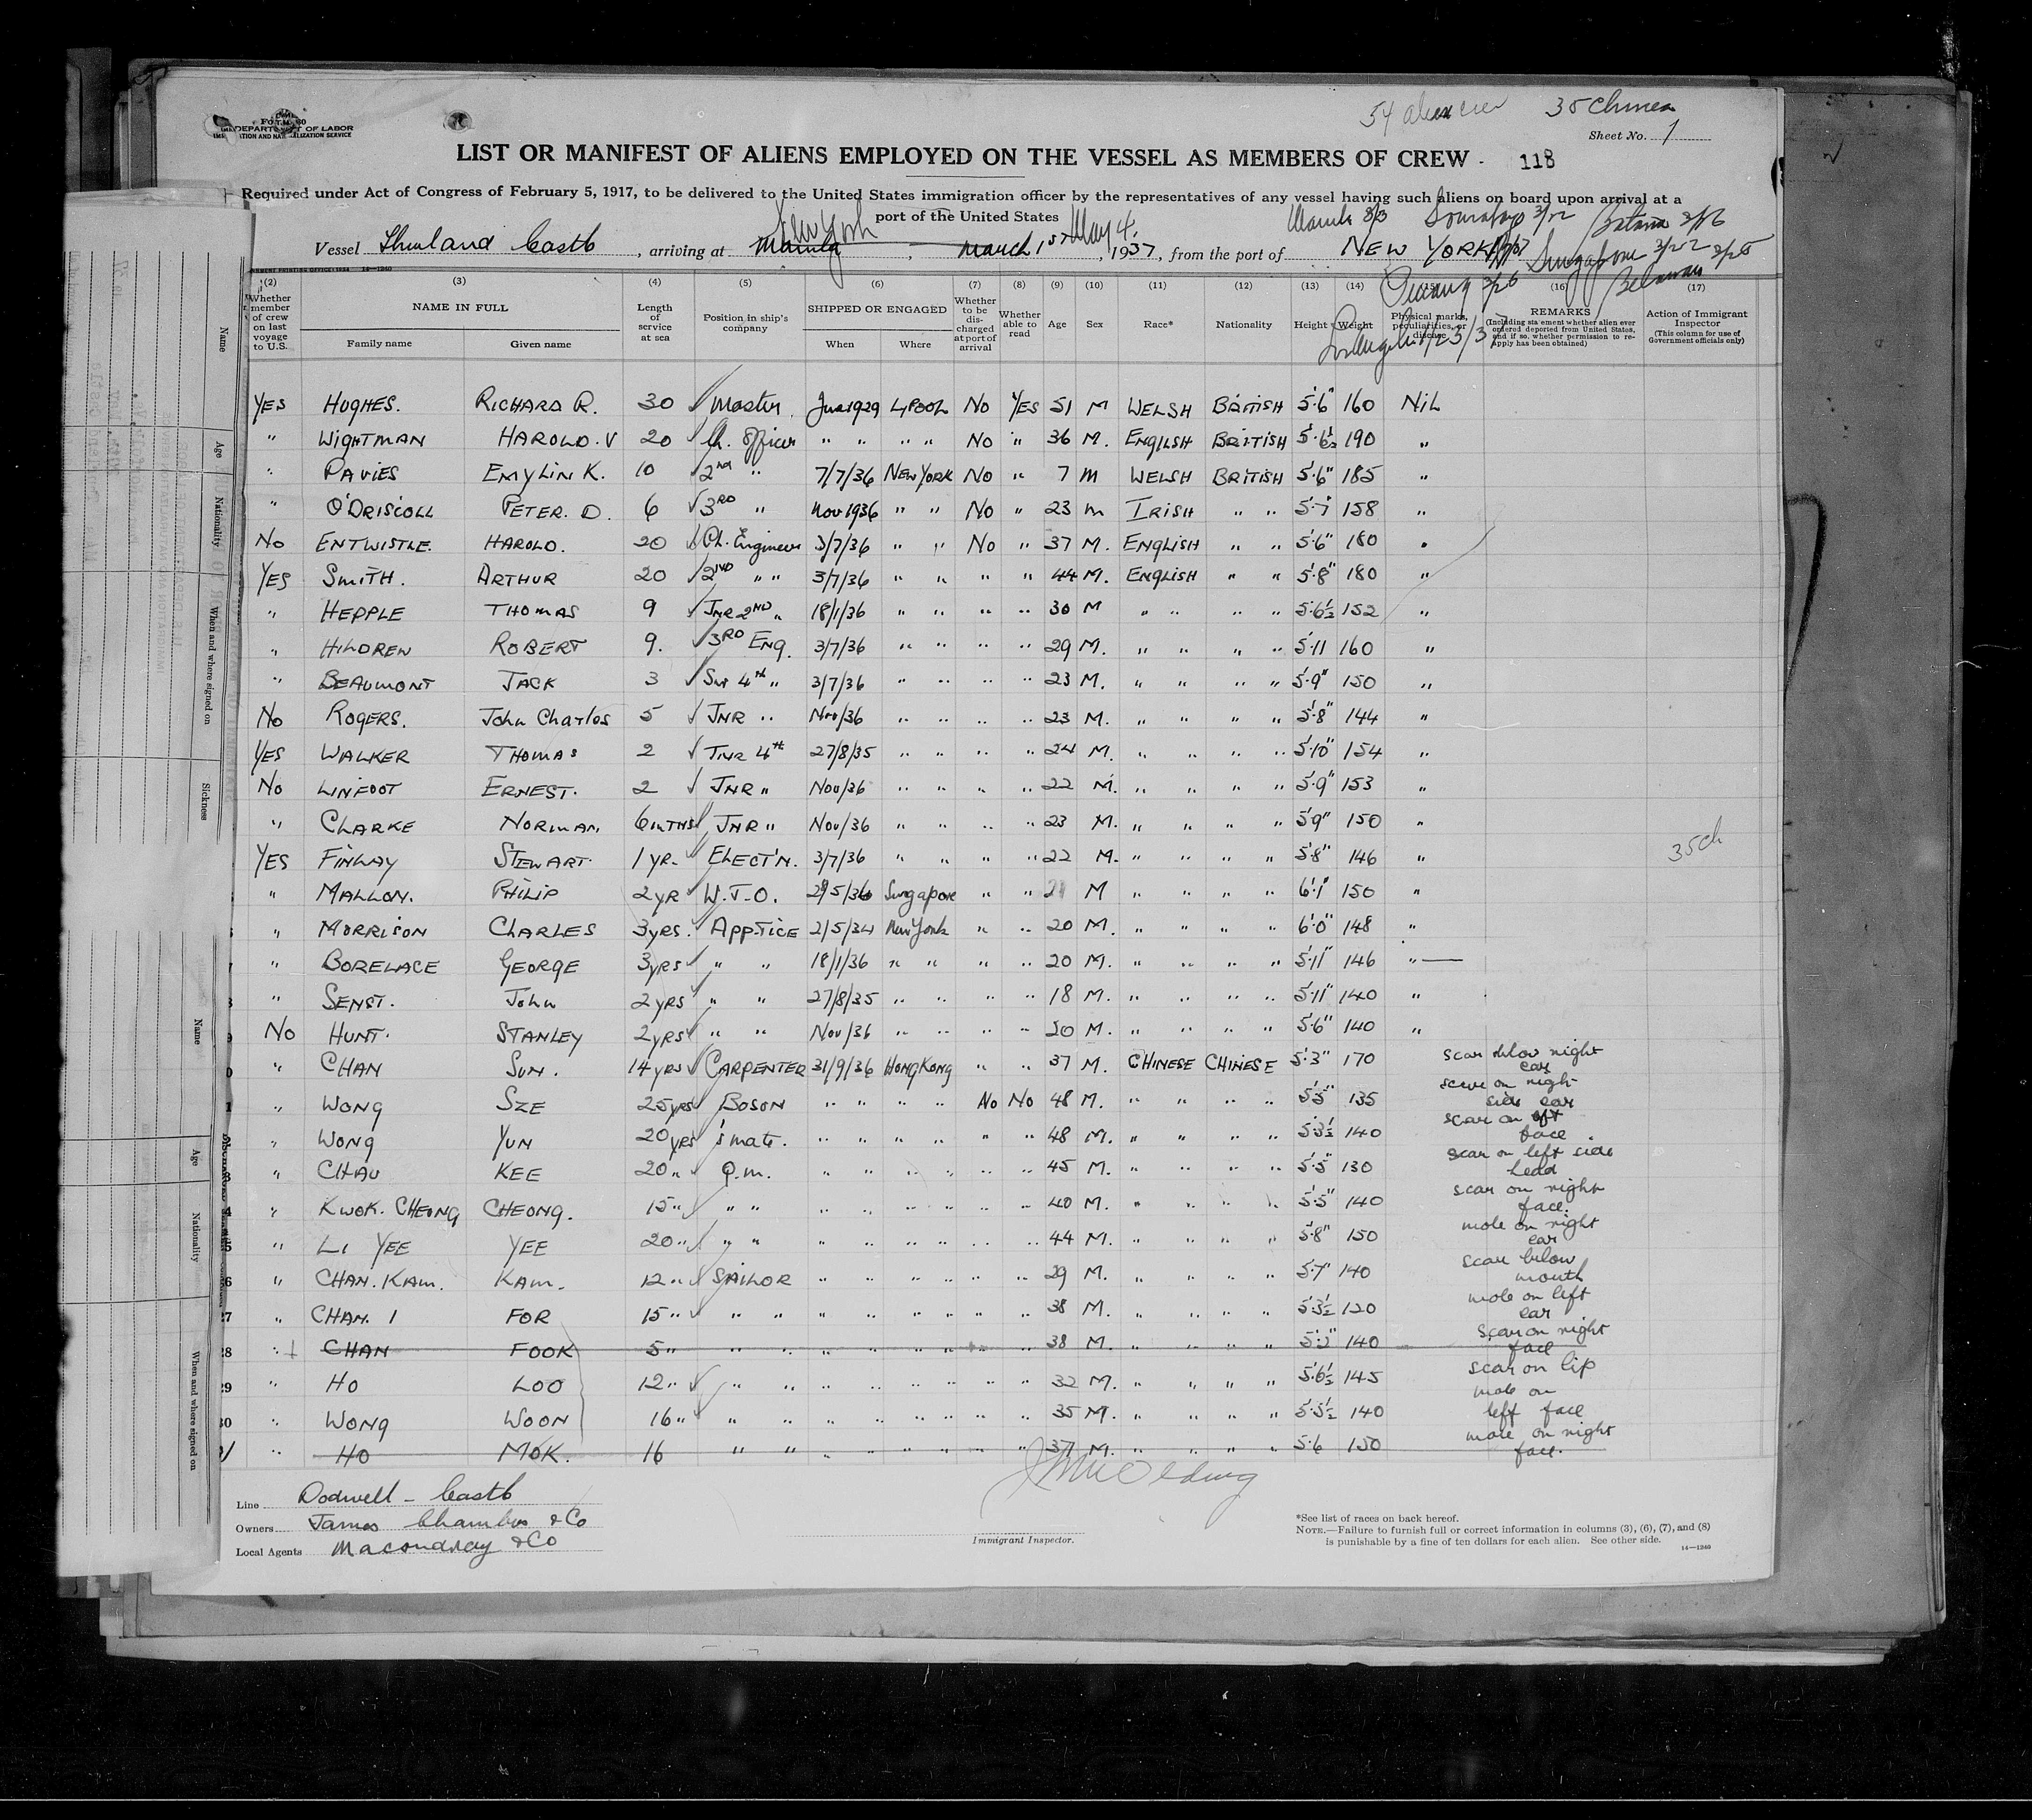 54 alien crew 35 Chinese
DEPARTMENT OF LABOR
Sheet No. 1
LIST OR MANIFEST OF ALIENS EMPLOYED ON THE VESSEL AS MEMBERS OF CREW 118
Required under Act of Congress of February 5, 1917, to be delivered to the United States immigration officer by the representatives of any vessel having such aliens on board upon arrival at a
port of the United States
New York May 4,
Manila 3/3 3/12 Batavia 3/16
Vessel Castle, arriving at Manila, March 1st, 1937, from the port of NEW YORK
Singapore 3/22 Belawan 3/25
Penang 3/26
Los Angeles 1/23/37
(2) (3) (4) (5) (6) (7) (8) (9) (10) (11) (12) (13) (14) (15) (16) (17)
Whether member of crew on last voyage to U.S. NAME IN FULL Family name Given name Length of service at sea Position in ship's company SHIPPED OR ENGAGED When Where Whether to be discharged at port of arrival Whether able to read Age Sex Race* Nationality Height Weight Physical marks, peculiarities, or disease REMARKS (Including statement whether alien ever ordered deported from United States, and if so, whether permission to reapply has been obtained) Action of Immigrant Inspector (This column for use of Government officials only)
YES HUGHES. RICHARD R. 30 Master. 1929 L'POOL NO YES 51 M WELSH BRITISH 5'6" 160 NIL
" WIGHTMAN HAROLD. V 20 Ch. Officer " " " " NO " 36 M. ENGLISH BRITISH 5'6½ 190 "
" DAVIES EMYLIN K. 10 2nd " 7/7/36 NEW YORK NO " 7 M WELSH BRITISH 5'6" 185 "
" O'DRISCOLL PETER. D. 6 3RD " Nov 1936 " " NO " 23 M IRISH " " 5'7" 158 "
NO ENTWISTLE. HAROLD. 20 Ch. Engineer 3/7/36 " " NO " 37 M. ENGLISH " " 5'6" 180 "
YES SMITH. ARTHUR 20 2ND " " 3/7/36 " " " " 44 M. ENGLISH " " 5'8" 180 "
" HEPPLE THOMAS 9 JNR 2ND " 18/1/36 " " " " 30 M " " " " 5'6½ 152 "
" HILDREW ROBERT 9. 3RD ENG. 3/7/36 " " " " 29 M. " " " " 5'11 160 "
" BEAUMONT JACK 3 4th " 3/7/36 " " " " 23 M. " " " " 5'9" 150 "
NO ROGERS. John Charles 5 JNR " Nov/36 " " " " 23 M. " " " " 5'8" 144 "
YES WALKER THOMAS 2 JNR 4th 27/8/35 " " " " 24 M. " " " " 5'10" 154 "
NO LINFOOT ERNEST. 2 JNR " Nov/36 " " " " 22 M. " " " " 5'9" 153 "
" CLARKE NORMAN. 6 MTHS JNR " Nov/36 " " " " 23 M. " " " " 5'9" 150 "
YES FINLAY STEWART. 1 YR. ELECT'N. 3/7/36 " " " " 22 M. " " " " 5'8" 146 " 35 Ch
" MALLON. PHILIP 2 YR W.T.O. 29/5/36 Singapore " " M " " " " 6'1" 150 "
" MORRISON CHARLES 3 yrs. APP'TICE 2/5/34 New York " " 20 M. " " " " 6'0" 148 "
" BORELACE GEORGE 3 YRS " " 18/1/36 " " " " 20 M. " " " " 5'11" 146 "
" SENST. John 2 YRS " " 27/8/35 " " " " 18 M. " " " " 5'11" 140 "
NO HUNT. STANLEY 2 YRS " " Nov/36 " " " " 20 M. " " " " 5'6" 140 "
" CHAN SUN. 14 YRS CARPENTER 31/9/36 HONGKONG " " 37 M. CHINESE CHINESE 5'3" 170 scar below right ear
" WONG SZE 25 yrs BOSON " " " " NO NO 48 M. " " " " 5'5" 135 on right side ear
" WONG YUN 20 YRS 's mate. " " " " " " 48 M. " " " " 5'3½ 140 scar on left face
" CHAU KEE 20 " Q.M. " " " " " " 45 M. " " " " 5'5" 130 scar on left side head
" KWOK. CHEONG CHEONG. 15 " " " " " " " " " 40 M. " " " " 5'5" 140 scar on right face.
" LI YEE YEE 20 " " " " " " " " " 44 M. " " " " 5'8" 150 mole on right ear
" CHAN. KAM. KAM. 12 " SAILOR " " " " " " 29 M. " " " " 5'7" 140 scar below mouth
27 " CHAN. I FOR 15 " " " " " " " " " 38 M. " " " " 5'3½ 120 mole on left ear
28 " CHAN FOOK 5 " " " " " " " " " 38 M. " " " " 140 scar on right face
29 " HO LOO 12 " " " " " " " " " 32 M. " " " " 5'6½ 145 scar on lip
30 " WONG WOON 16 " " " " " " " " " 35 M. " " " " 5'5½ 140 mole on left face
" HO MOK. 16 " " " " " " " 37 M. " " " " 5'6 150 mole on right face.
Line Dodwell - Castle
Owners James Chambers & Co
Local Agents Macondray & Co
Immigrant Inspector.
*See list of races on back hereof.
NOTE.—Failure to furnish full or correct information in columns (3), (6), (7), and (8)
is punishable by a fine of ten dollars for each alien. See other side.
14—1240
Name
Age
Nationality
When and where signed on
Sickness
Name
Age
Nationality
When and where signed on